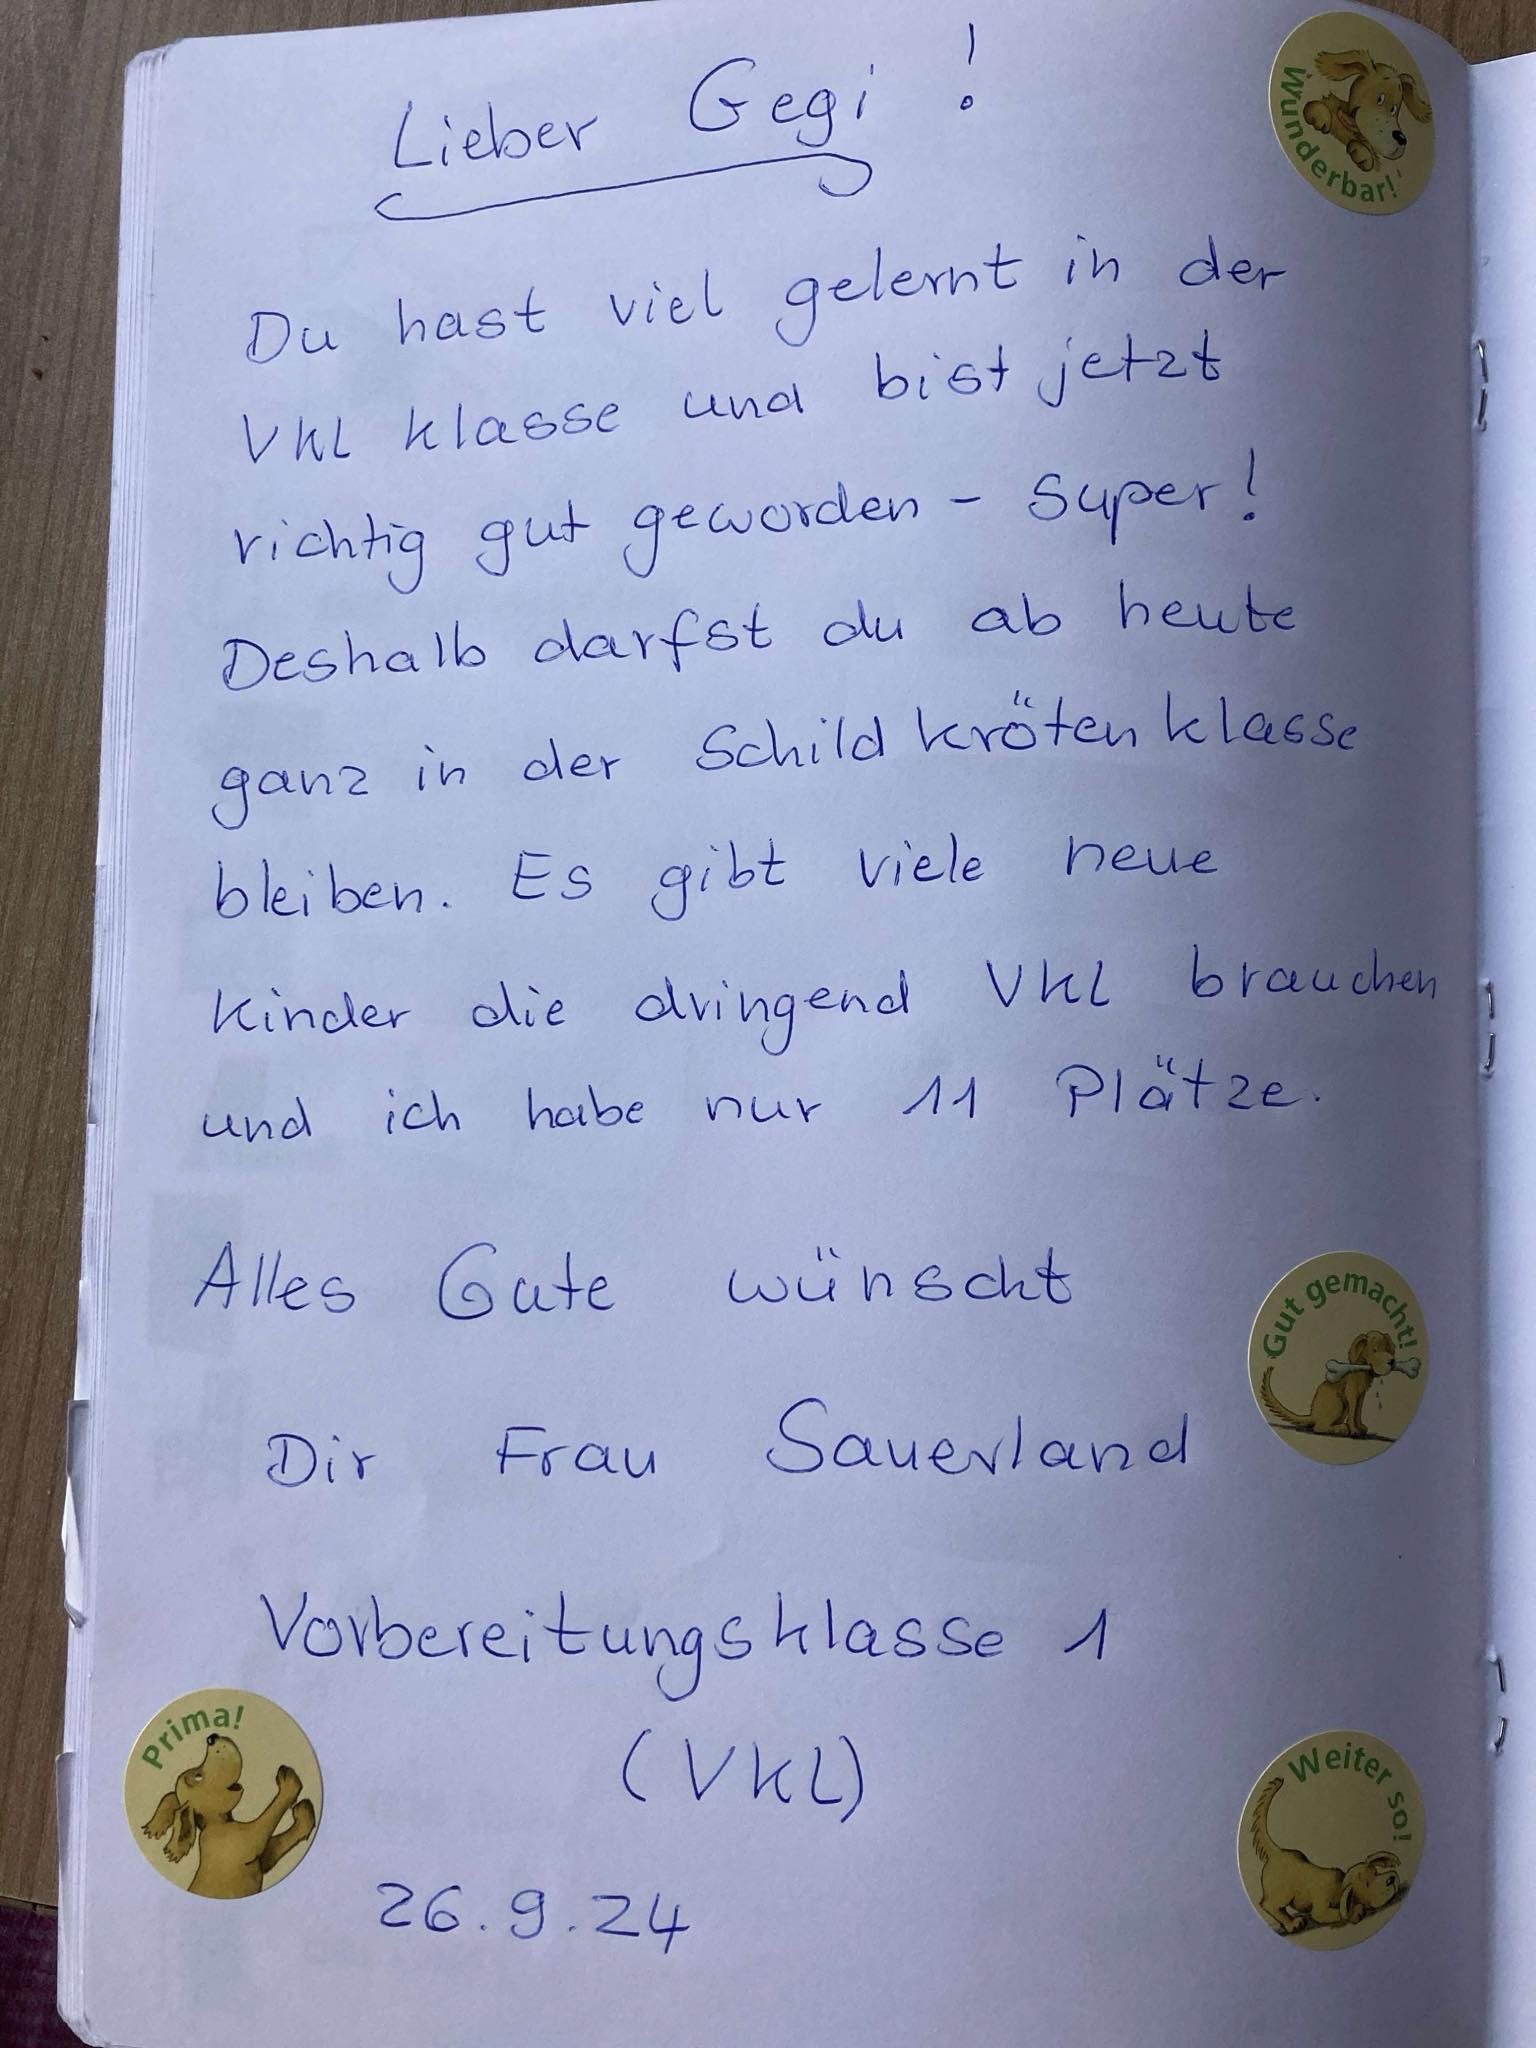 Lieber Gegi !
Wunderbar!
Du hast viel gelernt in der
VKL Klasse und bist jetzt
richtig gut geworden - Super!
Deshalb darfst du ab heute
ganz in der Schildkrötenklasse
bleiben. Es gibt viele neue
Kinder die dringend VKL brauchen
und ich habe nur 11 Plätze.
Alles Gute wünscht
Gut gemacht!
Dir Frau Sauerland
Vorbereitungsklasse 1
Prima!
(VKL)
Weiter so!
26.9.24